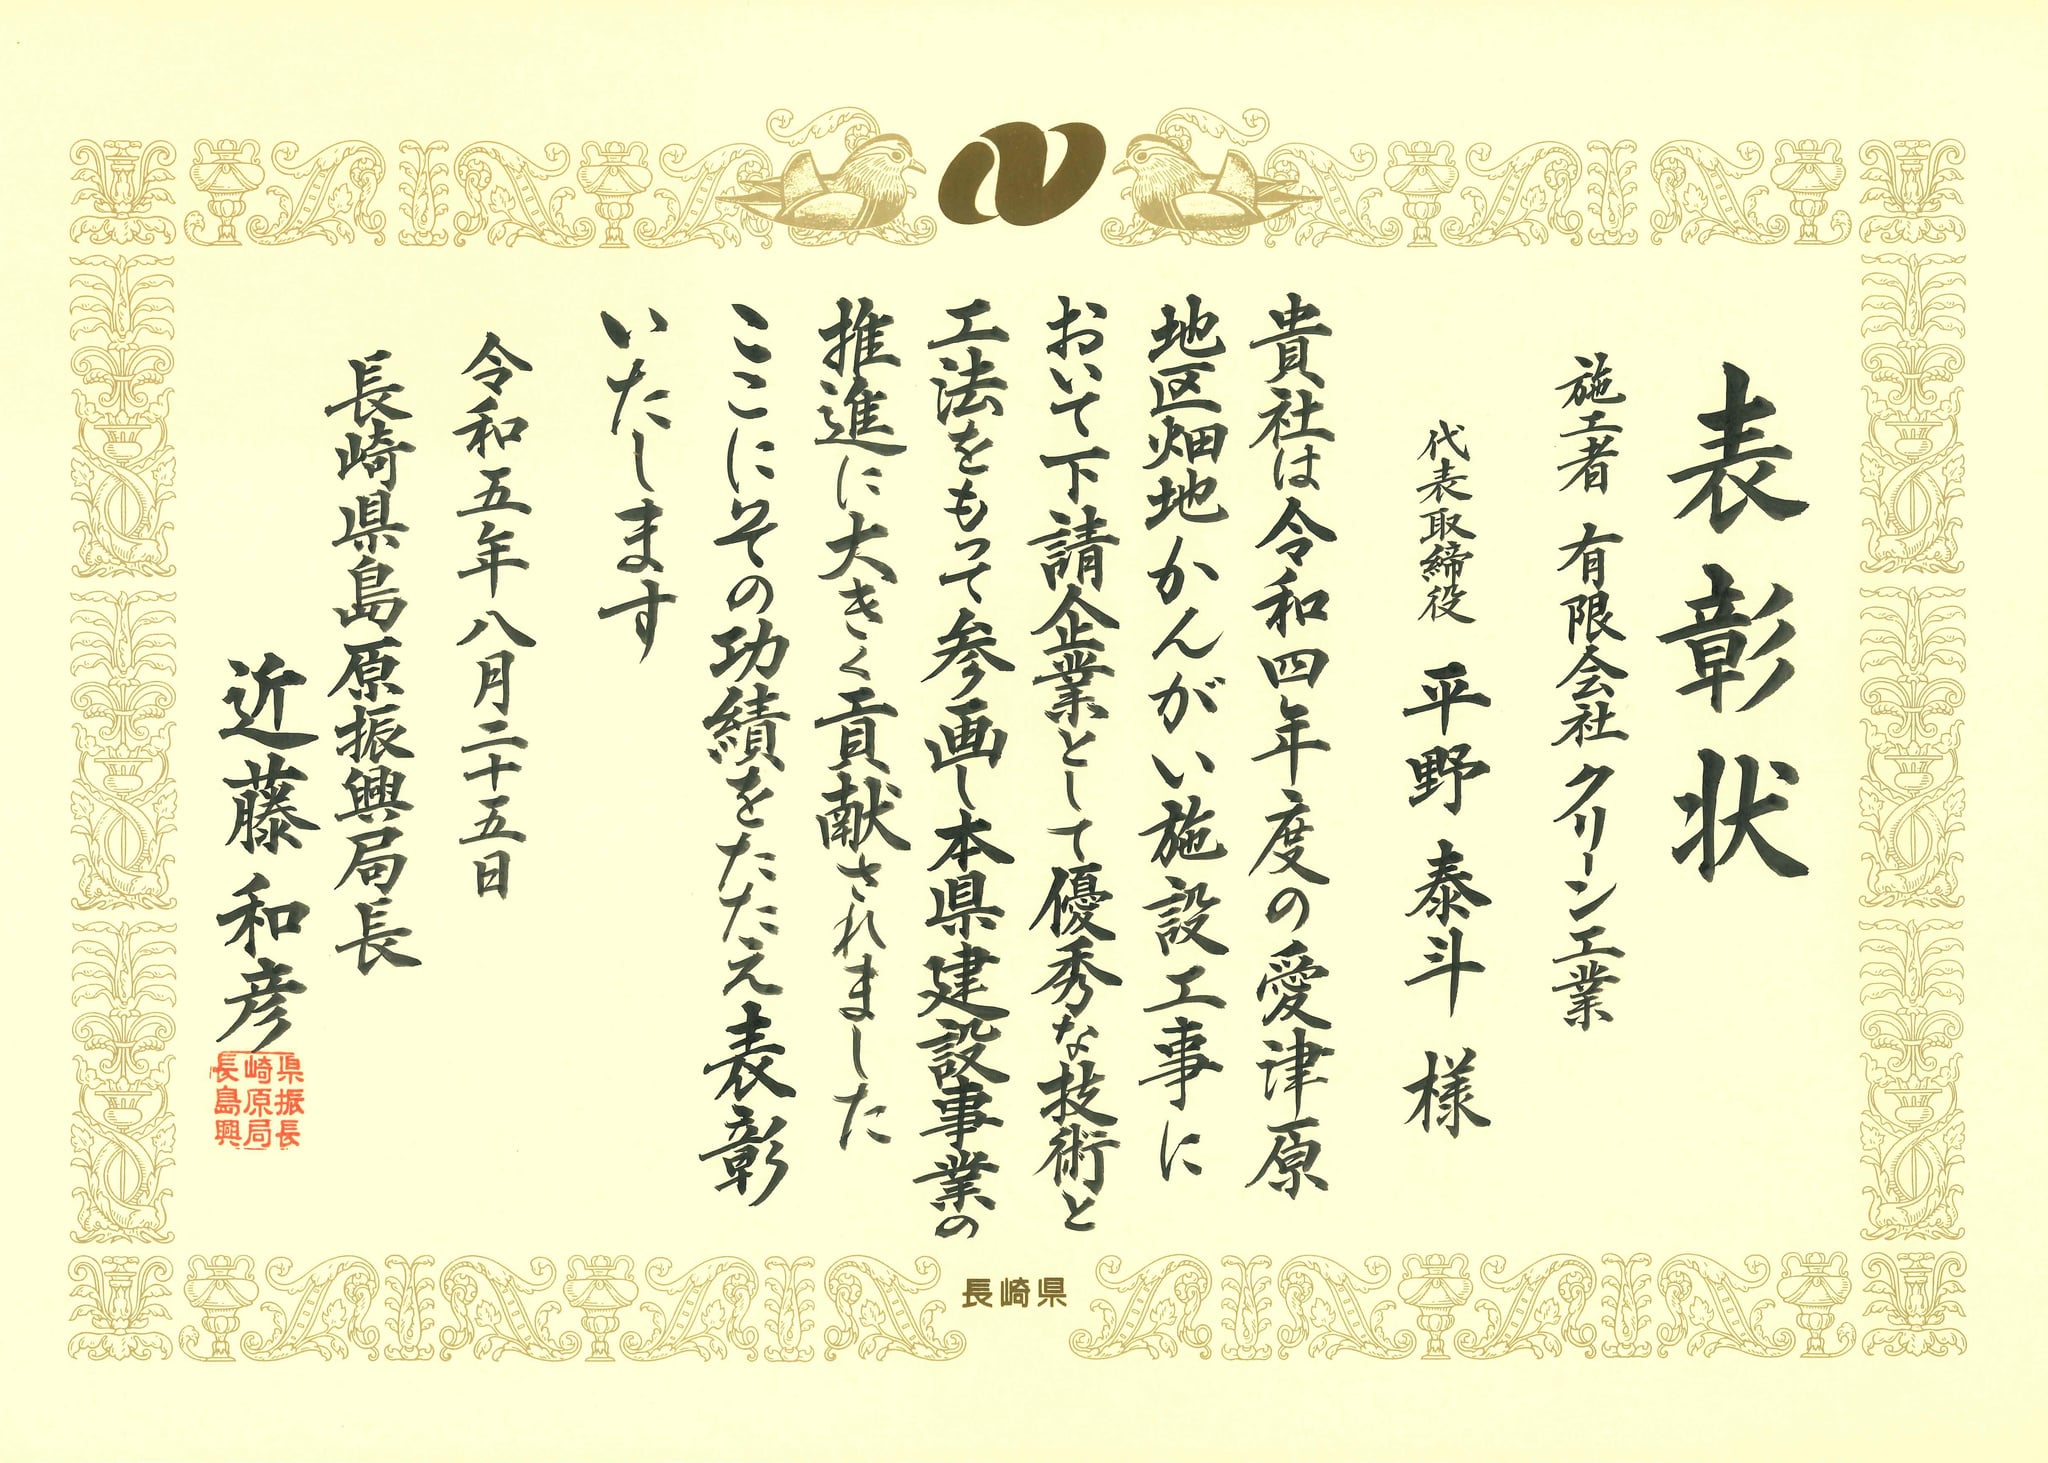 表彰状
施工者 有限会社 クリーン工業
代表取締役 平野 泰斗 様
貴社は令和四年度の愛津原
地区畑地かんがい施設工事に
おいて下請企業として優秀な技術と
工法をもって参画し本県建設事業の
推進に大きく貢献されました
ここにその功績をたたえ表彰
いたします
令和五年八月二十五日
長崎県島原振興局長
近藤和彦
長崎県
島原振
興局長
長崎県